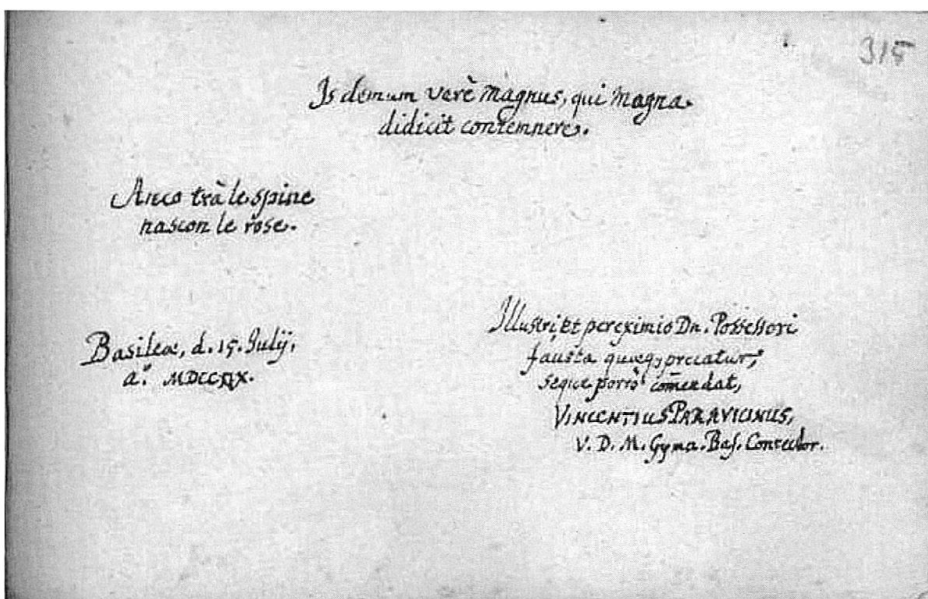 315
Is demum verè magnus, qui magna
didicit contemnere.
Anco trà le spine
nascon le rose.
Basileæ, d. 15. Julij,
aº.
Illustri et pereximio Dn. Possessori
fausta quæq; precatur,
seque porrò com̄endat,
VINCENTIUS PARAVICINUS,
V. D. M. Gymn. Bas. Conrector.